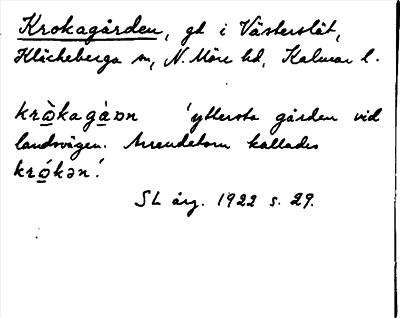 Krokagården, gd i Västerslät,
Kläckeberga sn, N. Möre hd, Kalmar l.
krò̱kagà̱ɒn 'yttersta gården vid
landsvägen. Arrendatorn kallades
kró̱kən'.
SL årg. 1922 s. 29.